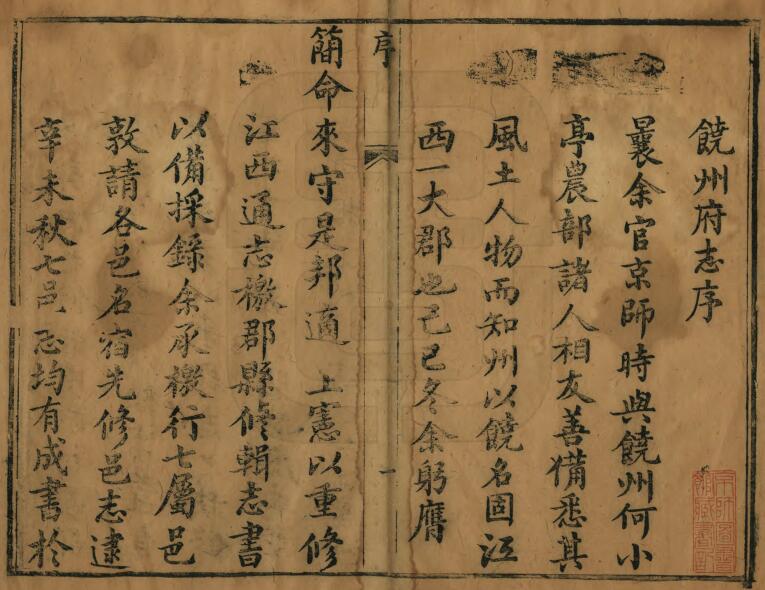 饒州府志序
曩余官京師時與饒州何小
亭農部諸人相友善備悉其
風土人物而知州以饒名固江
西一大郡也己巳冬余躬膺
序
一
簡命來守是邦適 上憲以重修
江西通志檄郡縣修輯志書
以備採錄余承檄行七屬邑
敦請各邑名宿先修邑志逮
辛未秋七邑志均有成書於